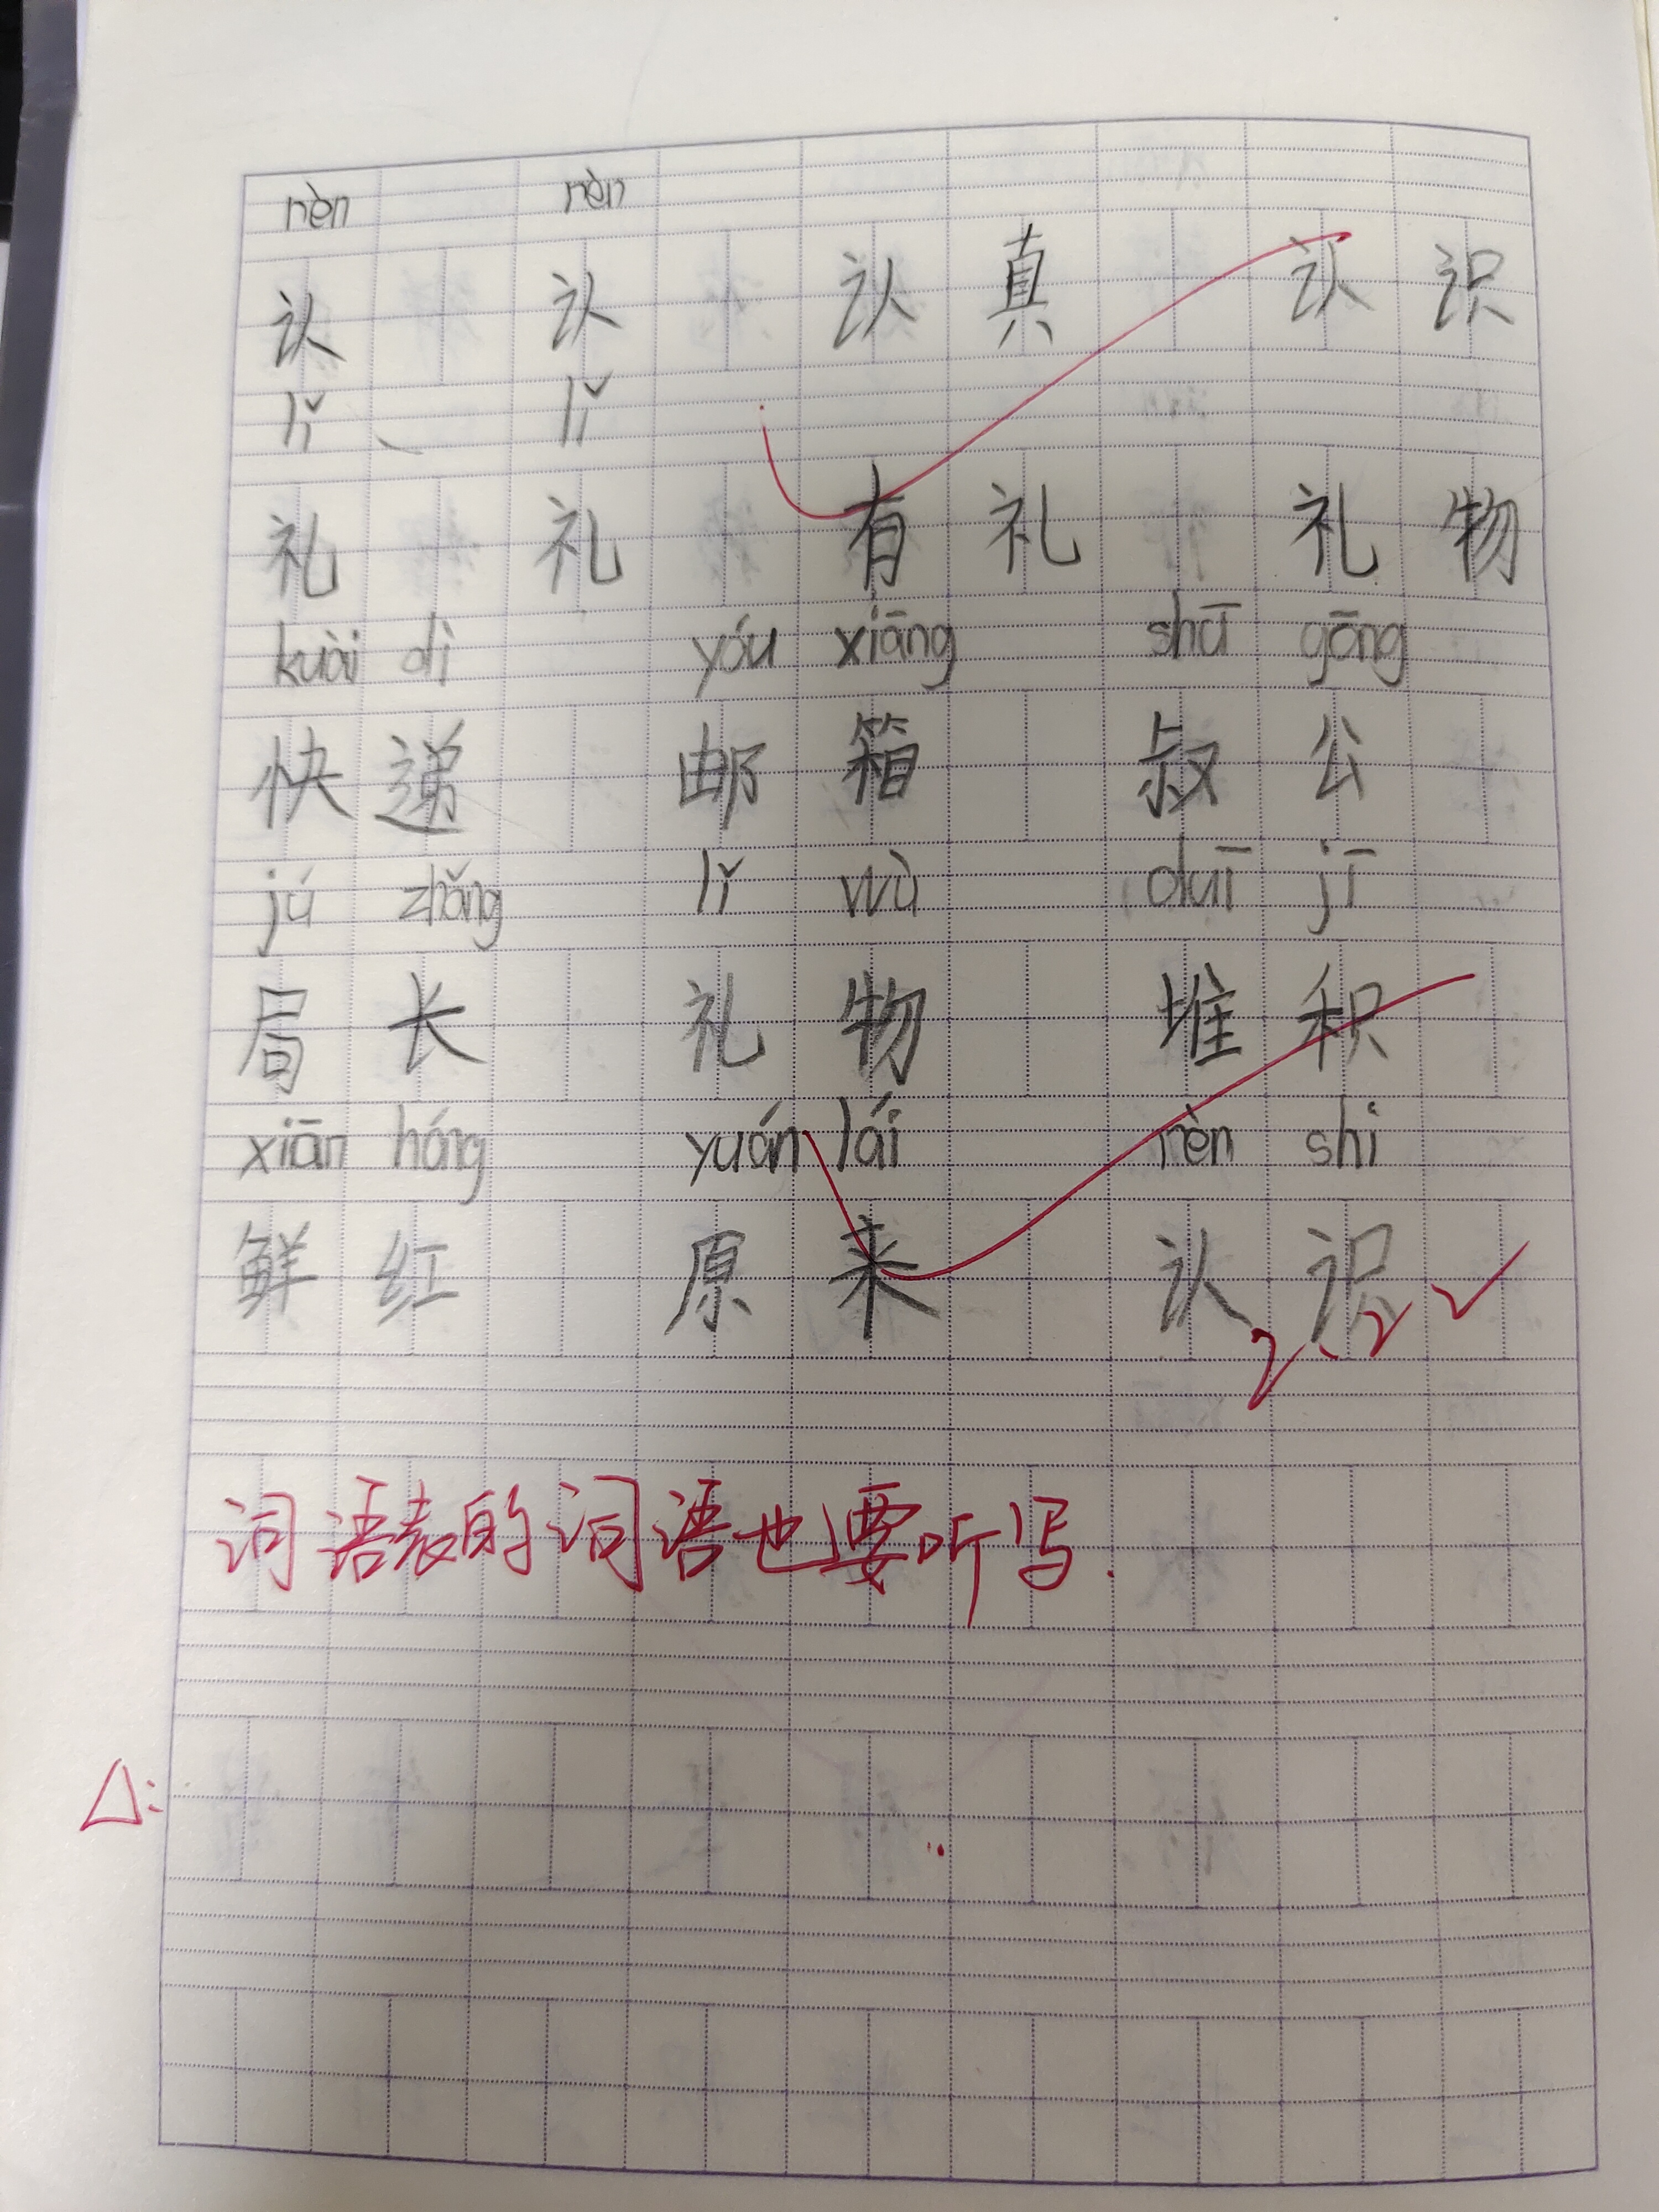 rèn rèn
认 认 认真 认识
lǐ lǐ
礼 礼 有礼 礼物
kuài dì yóu xiāng shū gōng
快递 邮箱 叔公
jú zhǎng lǐ wù duī jī
局长 礼物 堆积
xiān hóng yuán lái rèn shi
鲜红 原来 认识
词语表的词语也要听写.
△: